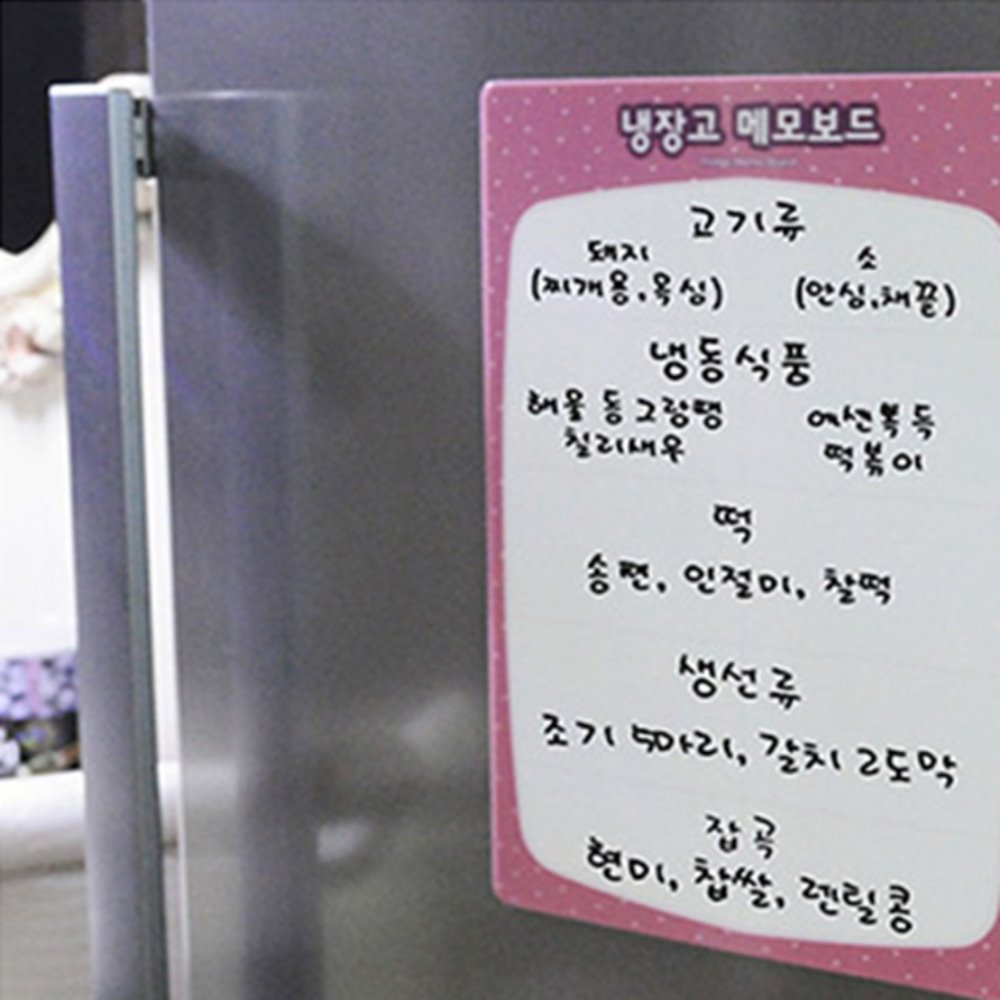 냉장고 메모보드
Fridge Memo Board
고기류
돼지 소
(찌개용,목심) (안심,채끝)
냉동식품
해물 동그랑땡 생선볶득
칠리새우 떡볶이
떡
송편, 인절미, 찰떡
생선류
조기 5마리, 갈치 2도막
잡곡
현미, 찹쌀, 렌틸콩